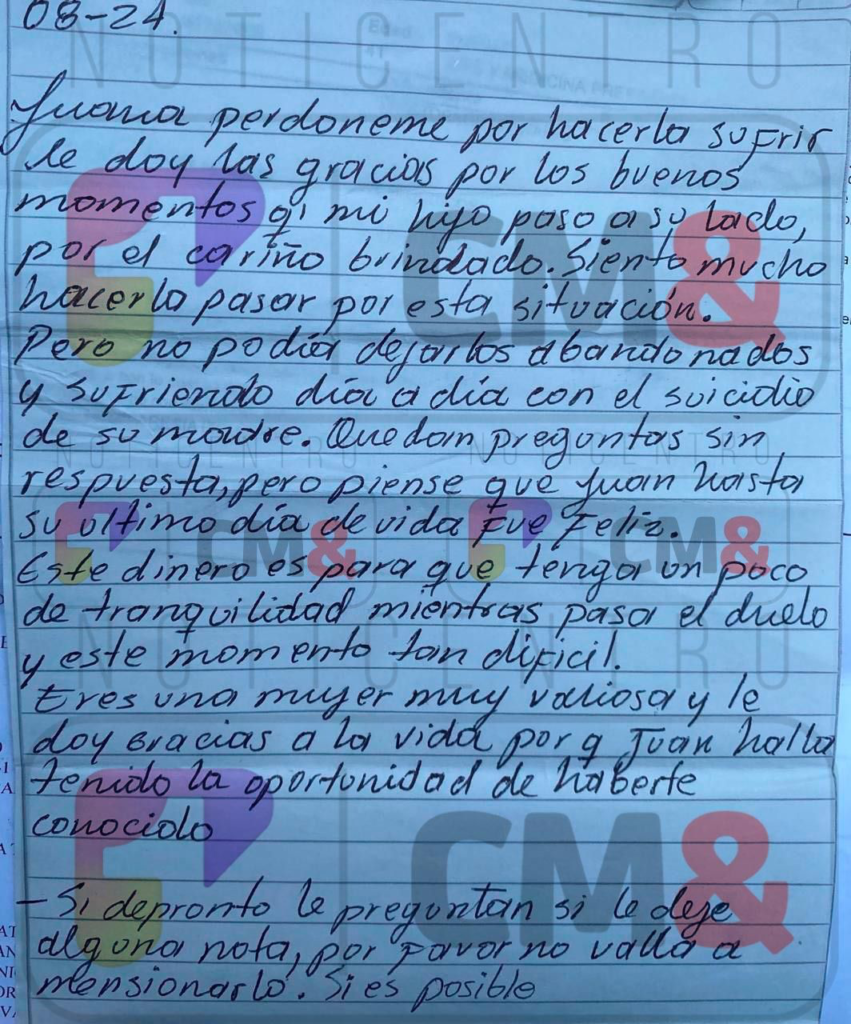 08-24.
NOTICENTRO
Juana perdoneme por hacerla sufrir
le doy las gracias por los buenos
momentos q' mi hijo paso a su lado,
por el cariño brindado. Siento mucho
hacerla pasar por esta situación.
Pero no podía dejarlos abandonados
y sufriendo día a día con el suicidio
de su madre. Quedan preguntas sin
respuesta, pero piense que Juan hasta
su ultimo día de vida fue Feliz.
Este dinero es para que tenga un poco
de tranquilidad mientras pasa el duelo
y este momento tan dificil.
Eres una mujer muy valiosa y le
doy gracias a la vida por q Juan halla
tenido la oportunidad de haberte
conocido
- Si depronto le preguntan si le deje
alguna nota, por favor no valla a
mensionarlo. Si es posible
CM&
NOTICENTRO
NOTICENTRO
CM&
CM&
NOTICENTRO
CM&